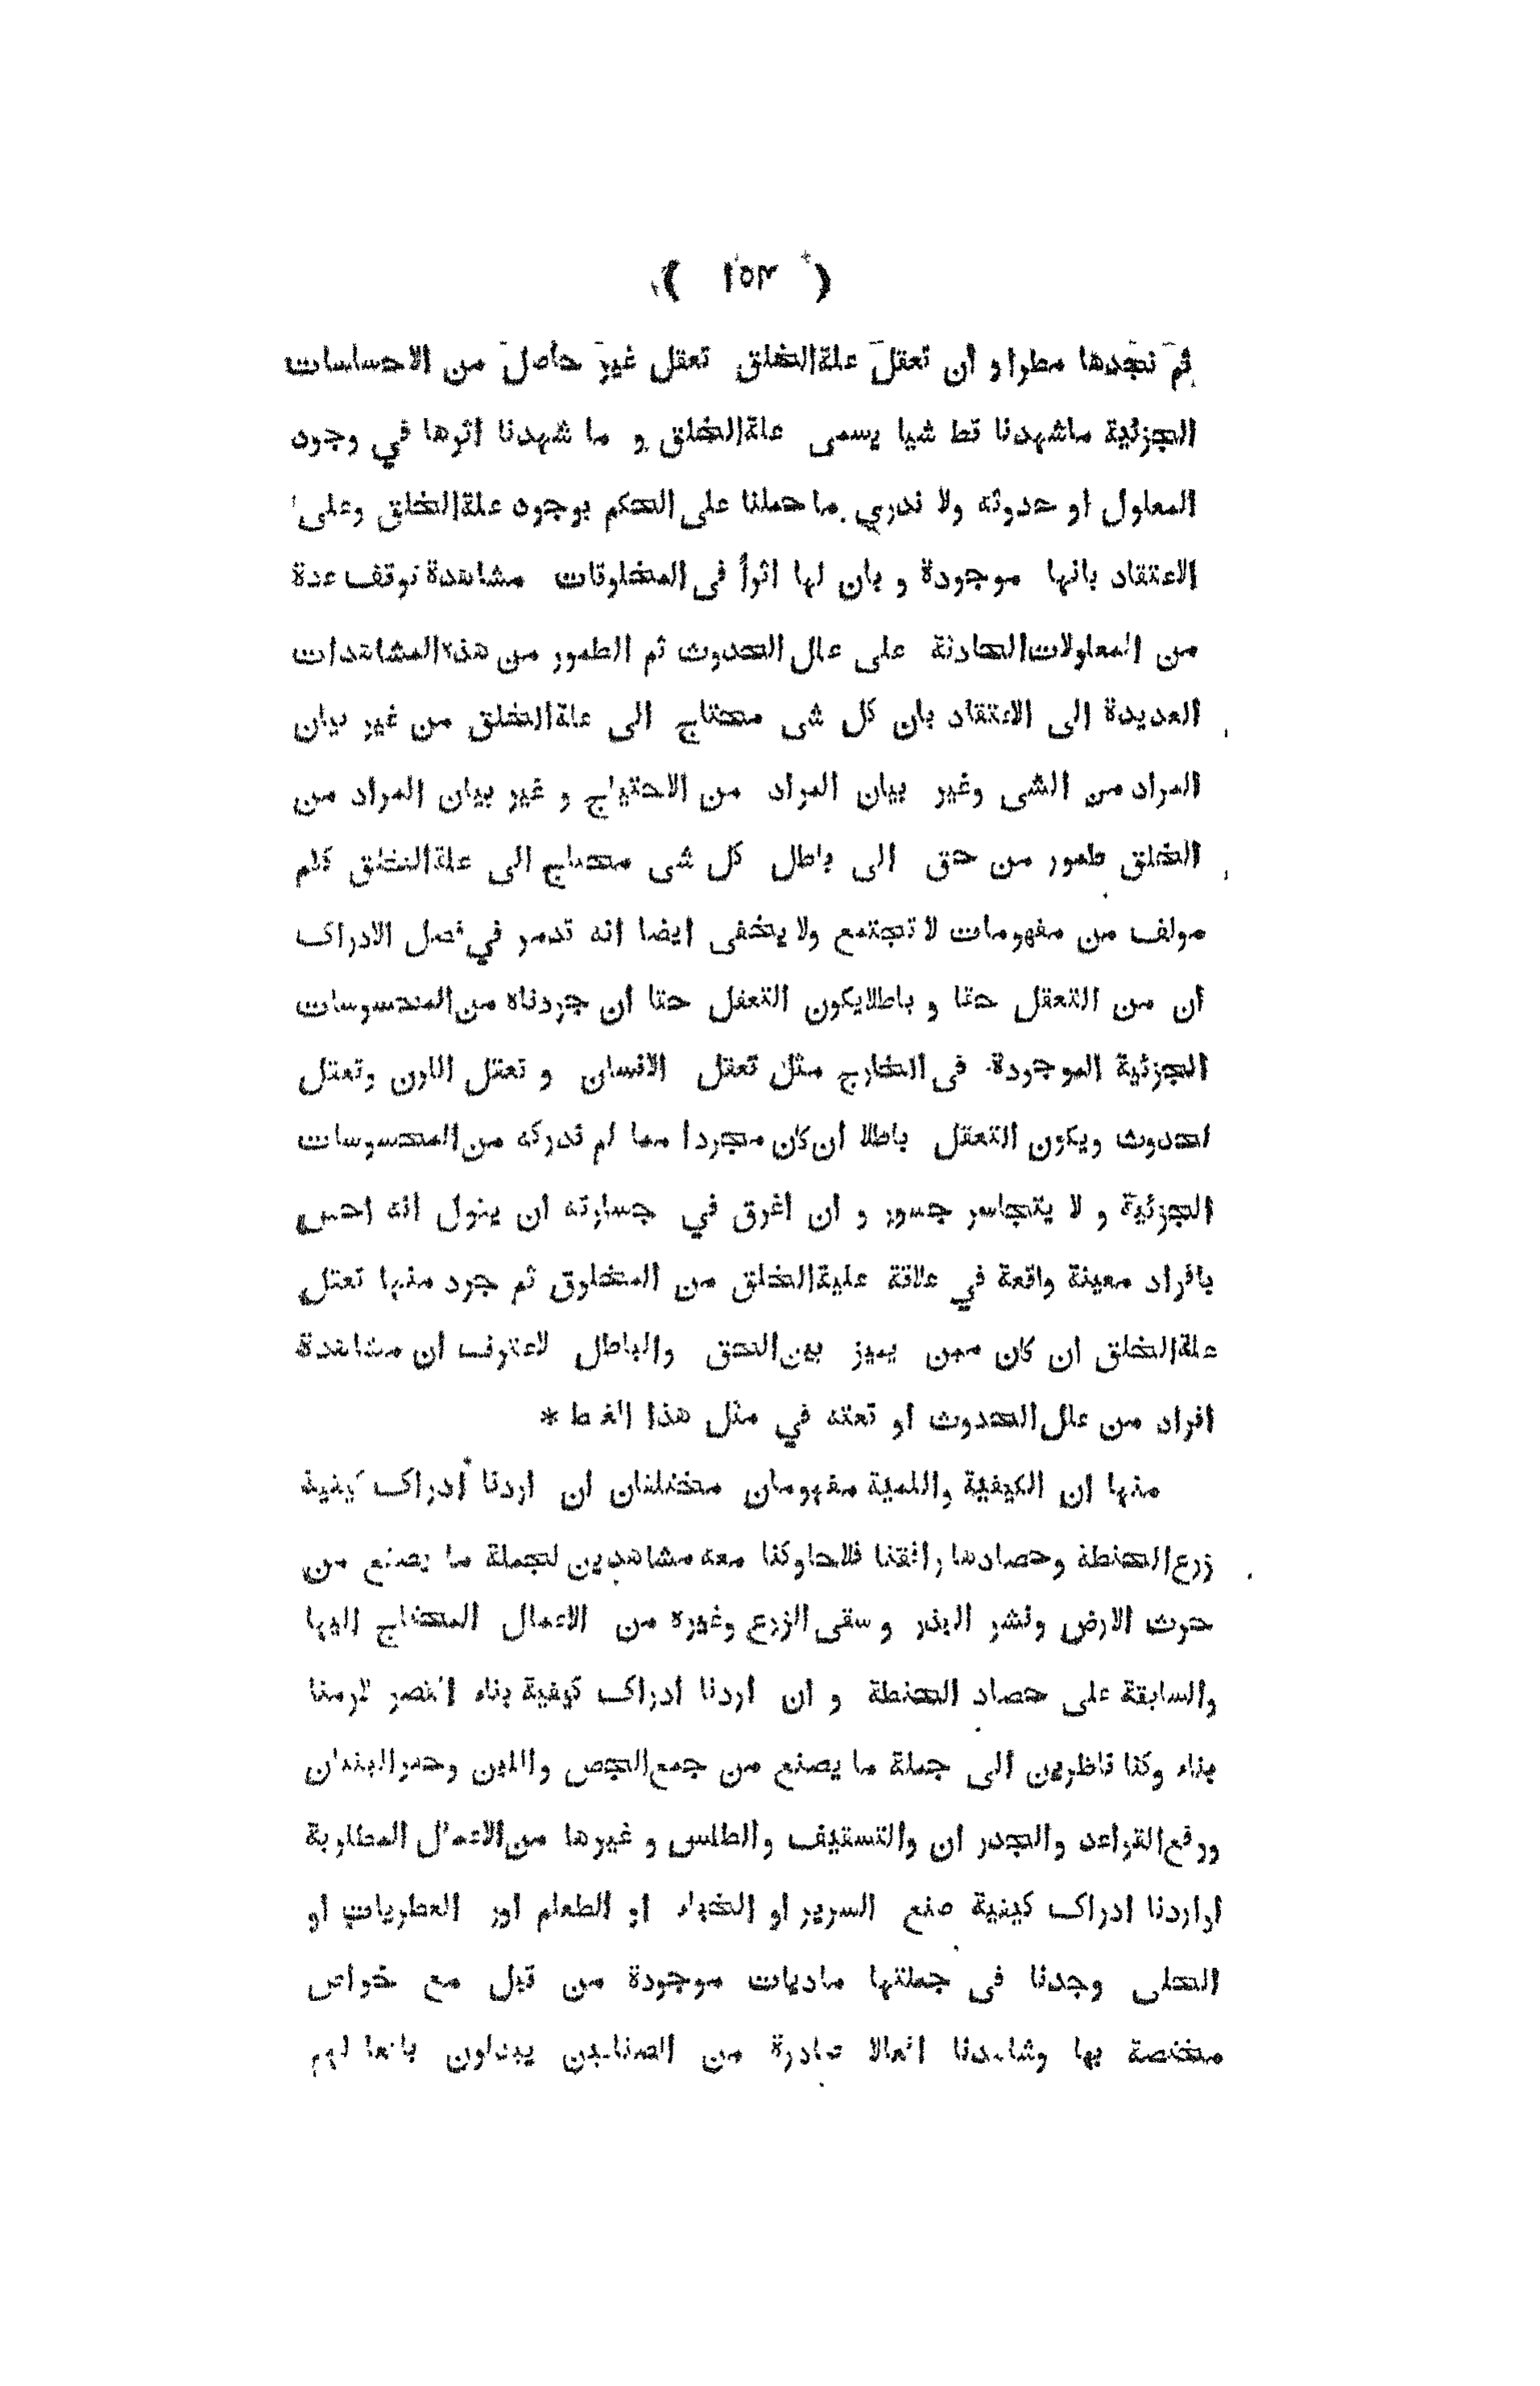 ( ١٥٣ )
ثم نجدها مطرا و أن تعقل علة الخلق تعقل غير حاصل من الاحساسات
الجزئية ماشهدنا قط شيا يسمى علة الخلق و ما شهدنا اثرها في وجود
المعلول او حدوثه ولا ندري ما حملنا على الحكم بوجود علة الخلق وعلى
الاعتقاد بانها موجودة و بان لها اثرا فى المخلوقات مشاهدة توقف عدة
من المعلولات الحادثة على علل الحدوث ثم الطمور من هذه المشاهدات
العديدة الى الاعتقاد بان كل شى محتاج الى علة الخلق من غير بيان
المراد من الشى وغير بيان المراد من الاحتياج و غير بيان المراد من
الخلق طمور من حق الى باطل كل شى محتاج الى علة الخلق كلم
مولف من مفهومات لا تجتمع ولا يخفى ايضا انه تدمر في فصل الادراك
أن من التعقل حقا و باطلا يكون التعقل حقا أن جردناه من المحسوسات
الجزئية الموجودة فى الخارج مثل تعقل الانسان و تعقل اللون وتعقل
لحدوث ويكون التعقل باطلا ان كان مجردا مما لم ندركه من المحسوسات
الجزئية و لا يتجاسر جسور و ان اغرق في جسارته ان يقول انه احس
بافراد معينة واقعة في علاقة علية الخلق من المخلوق ثم جرد منها تعقل
علة الخلق ان كان ممن يميز بين الحق والباطل لاعترف ان مشاهدة
افراد من علل الحدوث او تعته في مثل هذا الغلط *
منها ان الكيفية واللمية مفهومان مختلفان ان اردنا ادراك كيفية
زرع الحنطة وحصادها رافقنا فلاحا وكنا معه مشاهدين لجملة ما يصنع من
حرث الارض ونشر البذر و سقى الزرع وغيره من الاعمال المحتاج اليها
والسابقة على حصاد الحنطة و ان اردنا ادراك كيفية بناء القصر لازمنا
بناء وكنا ناظرين الى جملة ما يصنع من جمع الجص واللبن وحفر البندان
ورفع القواعد والجدر ان والتسقيف والطلس و غيرها من الاعمال المطلوبة
اواردنا ادراك كيفية صنع السرير او الخباء او الطعام اور العطريات او
الحلى وجدنا فى جملتها ماديات موجودة من قبل مع خواص
مختصة بها وشاهدنا افعالا صادرة من الصناعين يبدلون بافعالهم